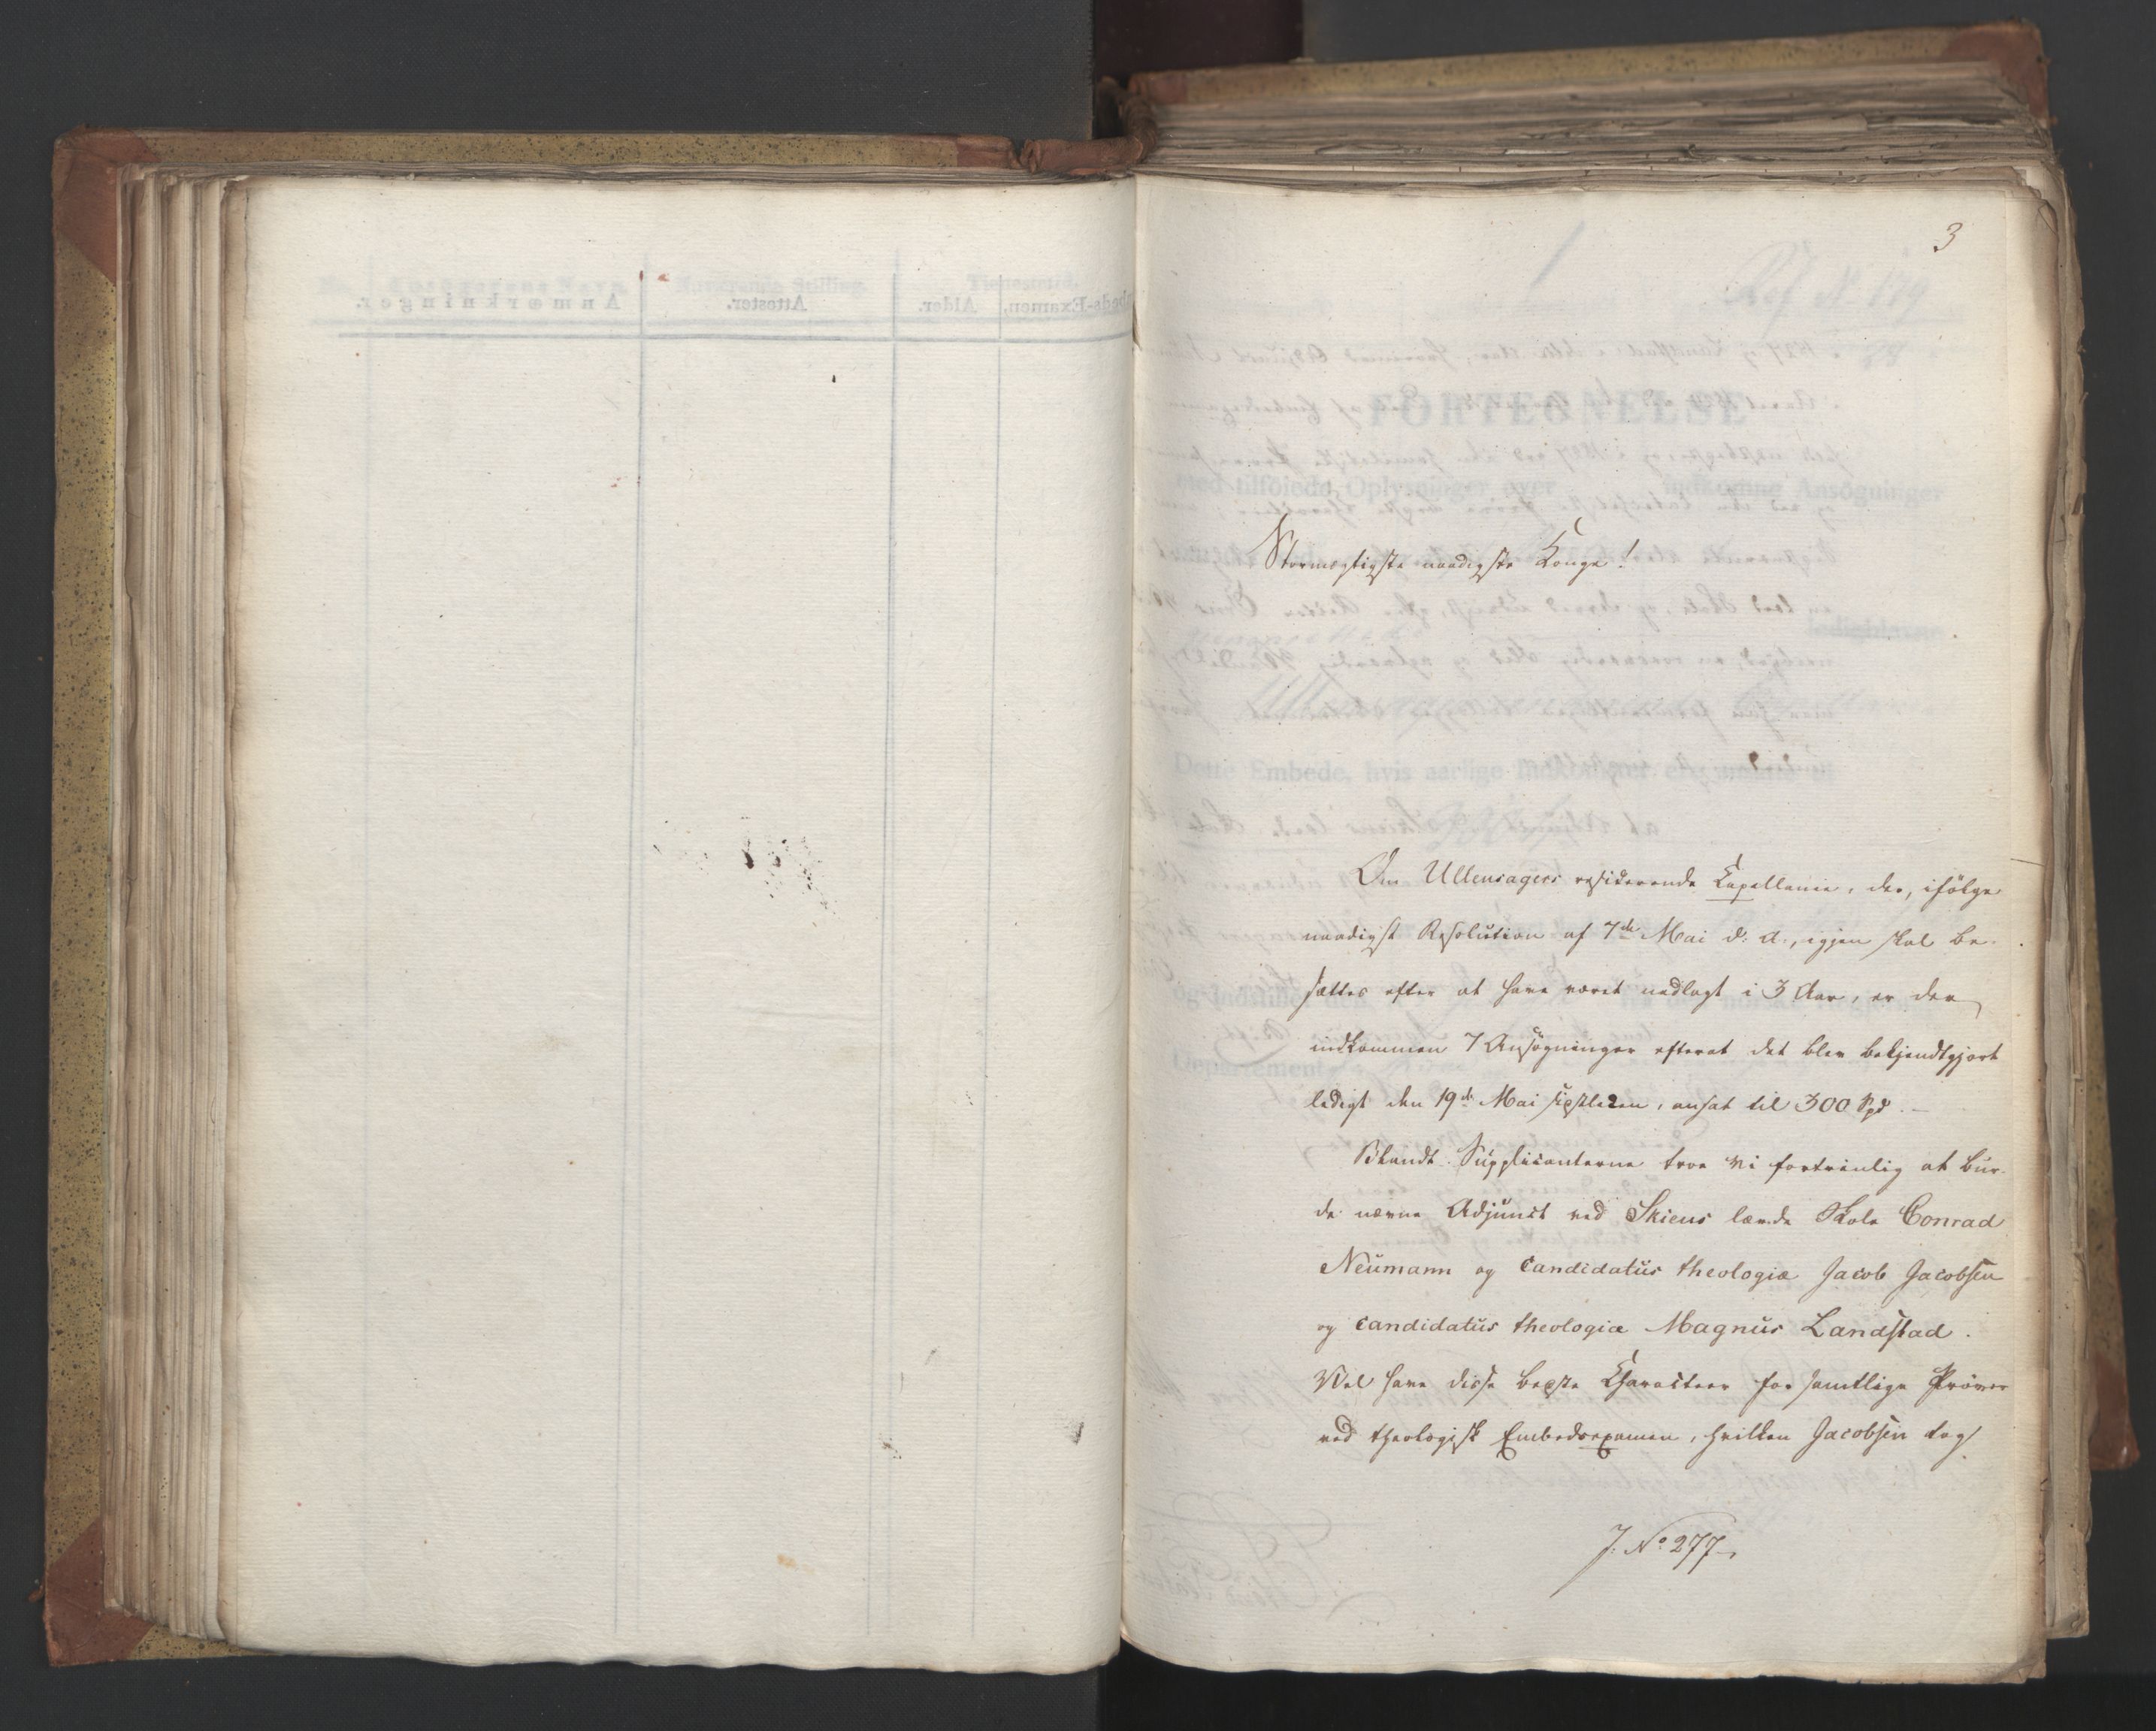 3
Stormægtigste naadigste Konge!
Om Ullensagers residerende Kapellanie, der, ifölge
naadigst Resolution af 7de Mai d: A:, igjen skal be-
sættes efter at have været nedlagt i 3 Aar, er der
indkommen 7 Ansögninger efterat det blev bekjendtgjort
ledigt den 19de Mai sidstleden, ansat til 300 Spd. —
Blandt Supplicanterne troe vi fortrinlig at bur-
de nævne Adjunct ved Skiens lærde Skole Conrad
Neumann og Candidatus theologiæ Jacob Jacobsen
og Candidatus theologiæ Magnus Landstad.
Vel have disse bedste Charakteer for samtlige Pröver
ved theologisk Embedsexamen, hvilken Jacobsen tog
J. No 277